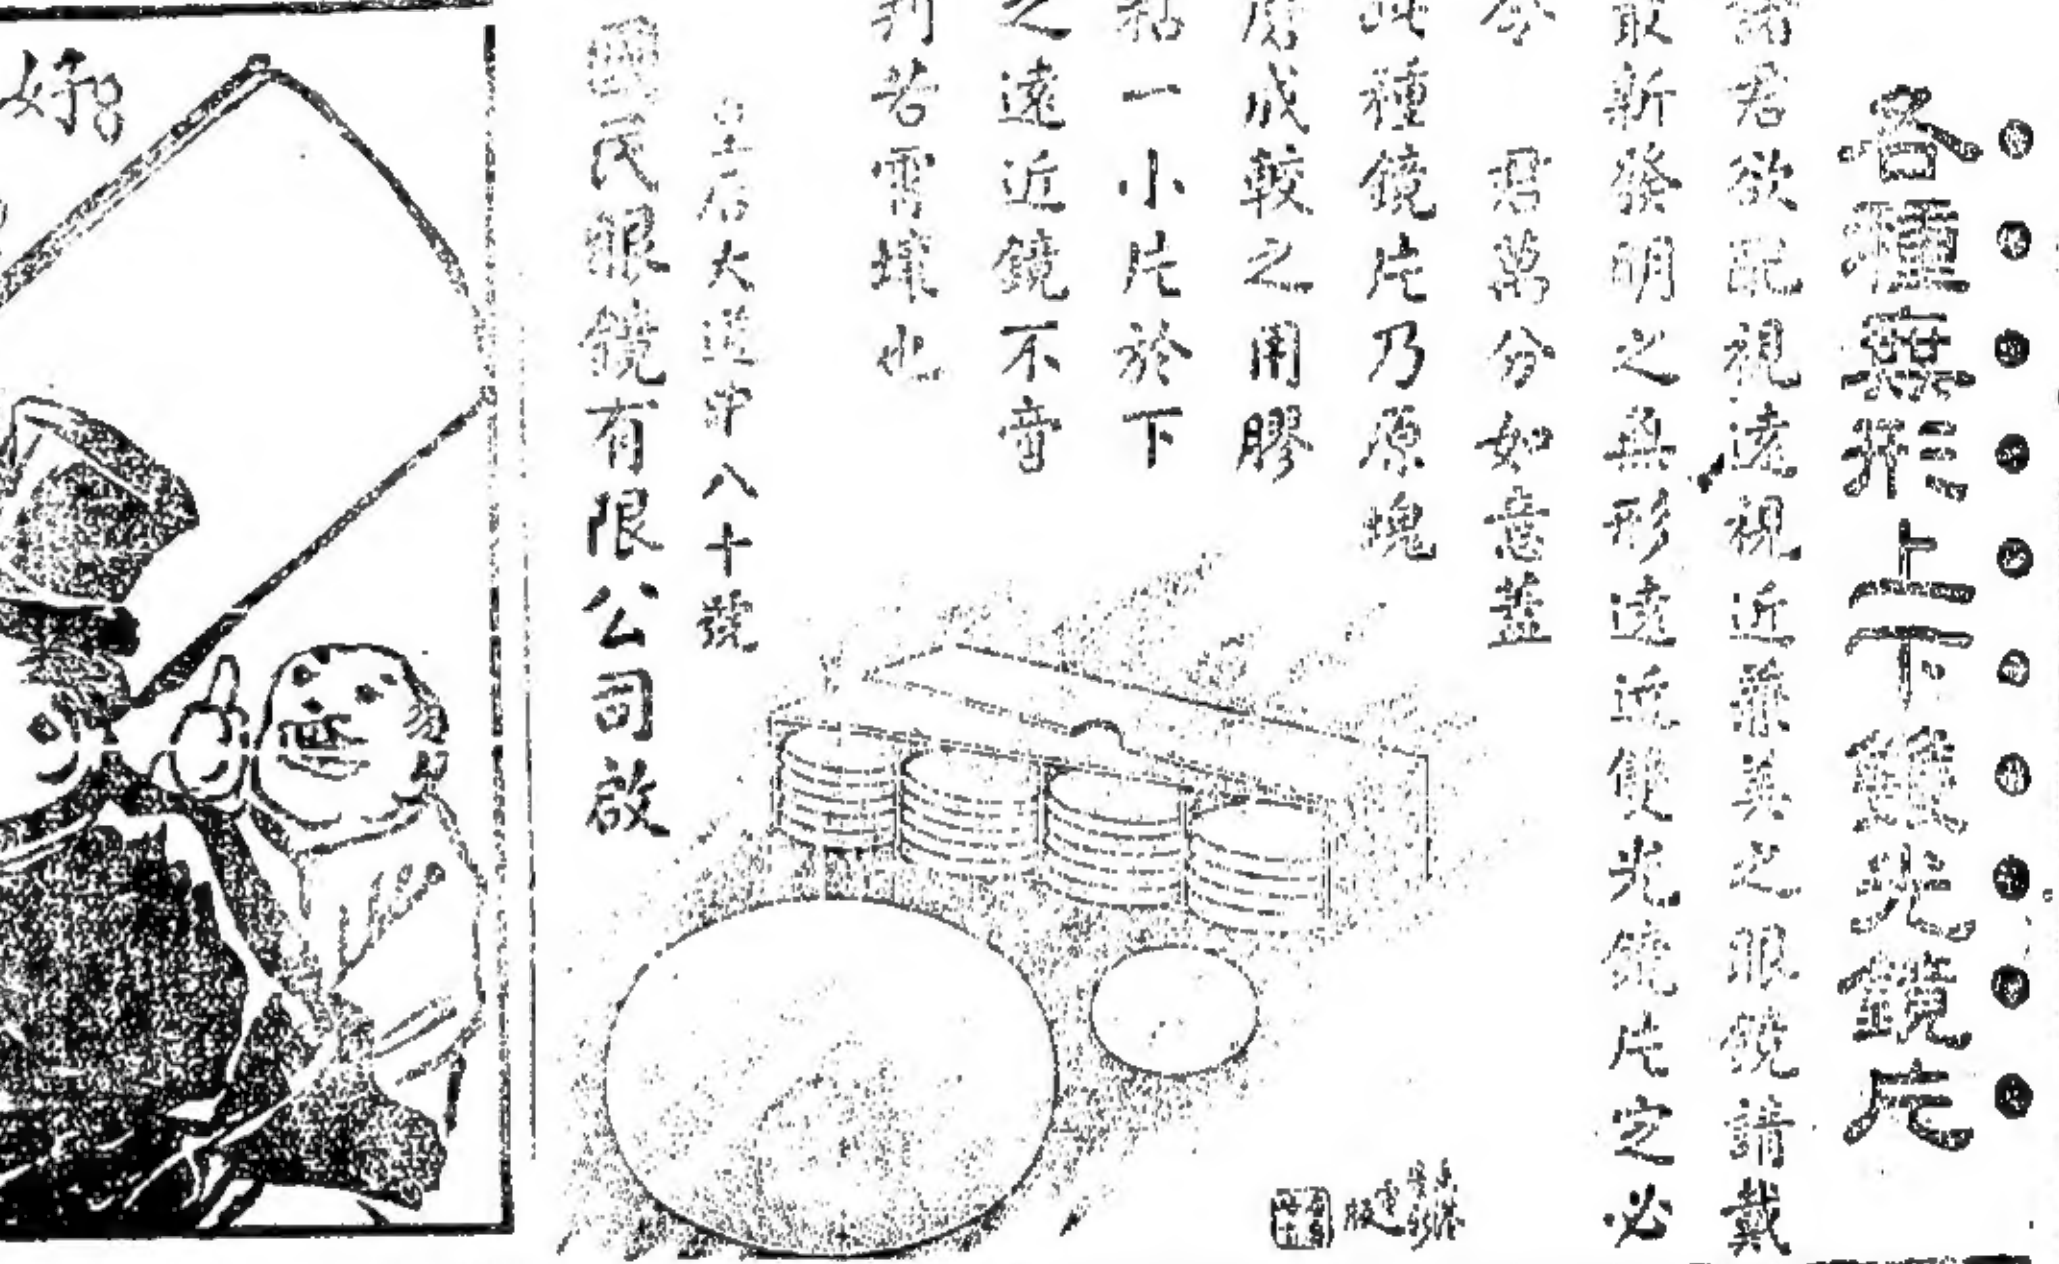 各種無形上下雙光鏡片
諸君欲配視遠視近兼其之眼鏡請戴
最新發明之無形遠近雙光鏡片定必
令 君萬分如意蓋
此種鏡片乃原塊
磨成較之用膠
粘一小片於下
之遠近鏡不啻
判若霄壤也
皇后大道中八十號
國民眼鏡有限公司啟
好